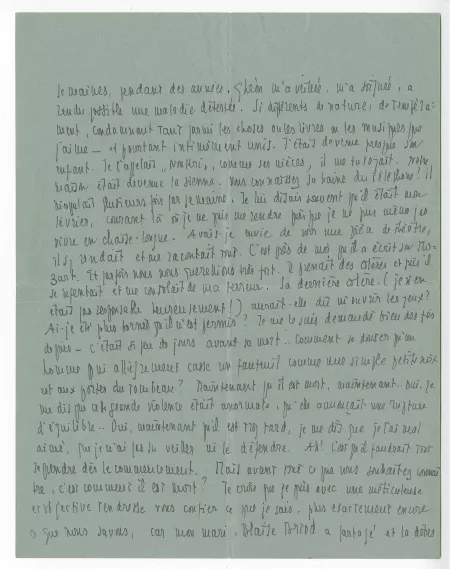 semaines, pendant des années. Ghéon m'a veillée, m'a soignée, a
rendu possible une maladie détestée. Si différents de nature, de tempéra-
ment, condamnant tant parmi les choses ou les livres ou les musiques que
j'aime — et pourtant intimement unis. J'étais devenue presque son
enfant. Je l'appelais comme ses nièces, il me tutoyait. Notre
maison était devenue la sienne. Vous connaissez sa haine du téléphone! il
plusieurs fois par semaine. Je lui disais souvent qu'il était mon
lévrier, courant là où je ne puis me rendre puisque je ne puis même pas
vivre en chaise-longue. Avais-je envie de voir une pièce de théâtre,
il s'y rendait et me racontait tout. C'est près de moi qu'il a écrit son Mo-
zart. Et parfois nous nous querellions très fort. Il prenait des colères et puis il
se repentait et me consolait de ma terreur. Sa dernière colère (je n'en
étais pas responsable heureusement!) aurait-elle dû m'ouvrir les yeux?
Ai-je été plus qu'il n'est permis? Je me le suis demandé bien des fois
depuis — c'était si peu de jours avant sa mort.. Comment se douter qu'un
homme qui allègrement casse un fauteuil comme une simple petite noix
est aux portes du tombeau? Maintenant qu'il est mort, maintenant.. oui, je
me dis que cette grande violence était anormale, qu'elle annonçait une rupture
d'équilibre.. Oui, maintenant qu'il est trop tard, je me dis que je l'ai mal
aimé, que je n'ai pas su veiller ni le défendre. Ah! C'est qu'il faudrait tout
reprendre dès le commencement. Mais avant tout ce que vous souhaitez connaî-
tre, c'est comment il est mort? Je crois que je puis avec une méticuleuse
et objective tendresse vous confier ce que je sais, plus exactement encore
ce que nous savons, car mon mari, Blaise Briod a partagé et la